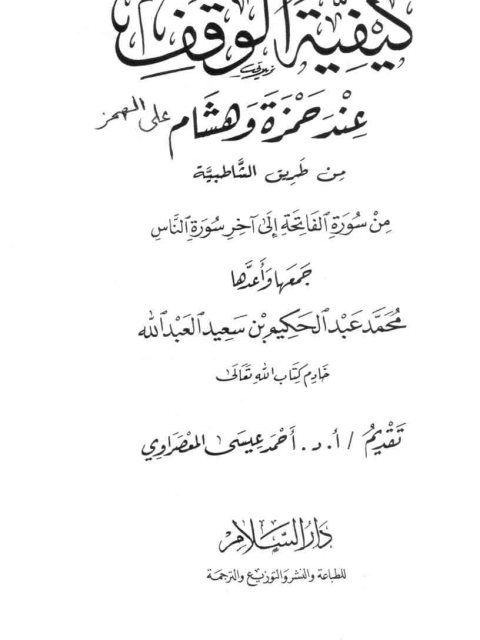 كَيْفِيَّةُ الْوَقْفِ
عِنْدَ حَمْزَةَ وَهِشَام على الهمز
مِن طَرِيق الشَّاطِبِيَّة
مِنْ سُورَةِ الفَاتِحَةِ إِلَىٰ آخِرِ سُورَةِ النَّاسِ
جَمَعَهَا وَأَعَدَّهَا
مُحَمَّد عَبْد الحَكِيم بْن سَعِيد العَبْد الله
خَادِم كِتَاب اللهِ تَعَالَىٰ
تَقْدِيمُ / أ. د. أَحْمَد عِيسَى المَعْصَرَاوِي
دَارُ السَّلَامِ
للطباعة والنشر والتوزيع والترجمة